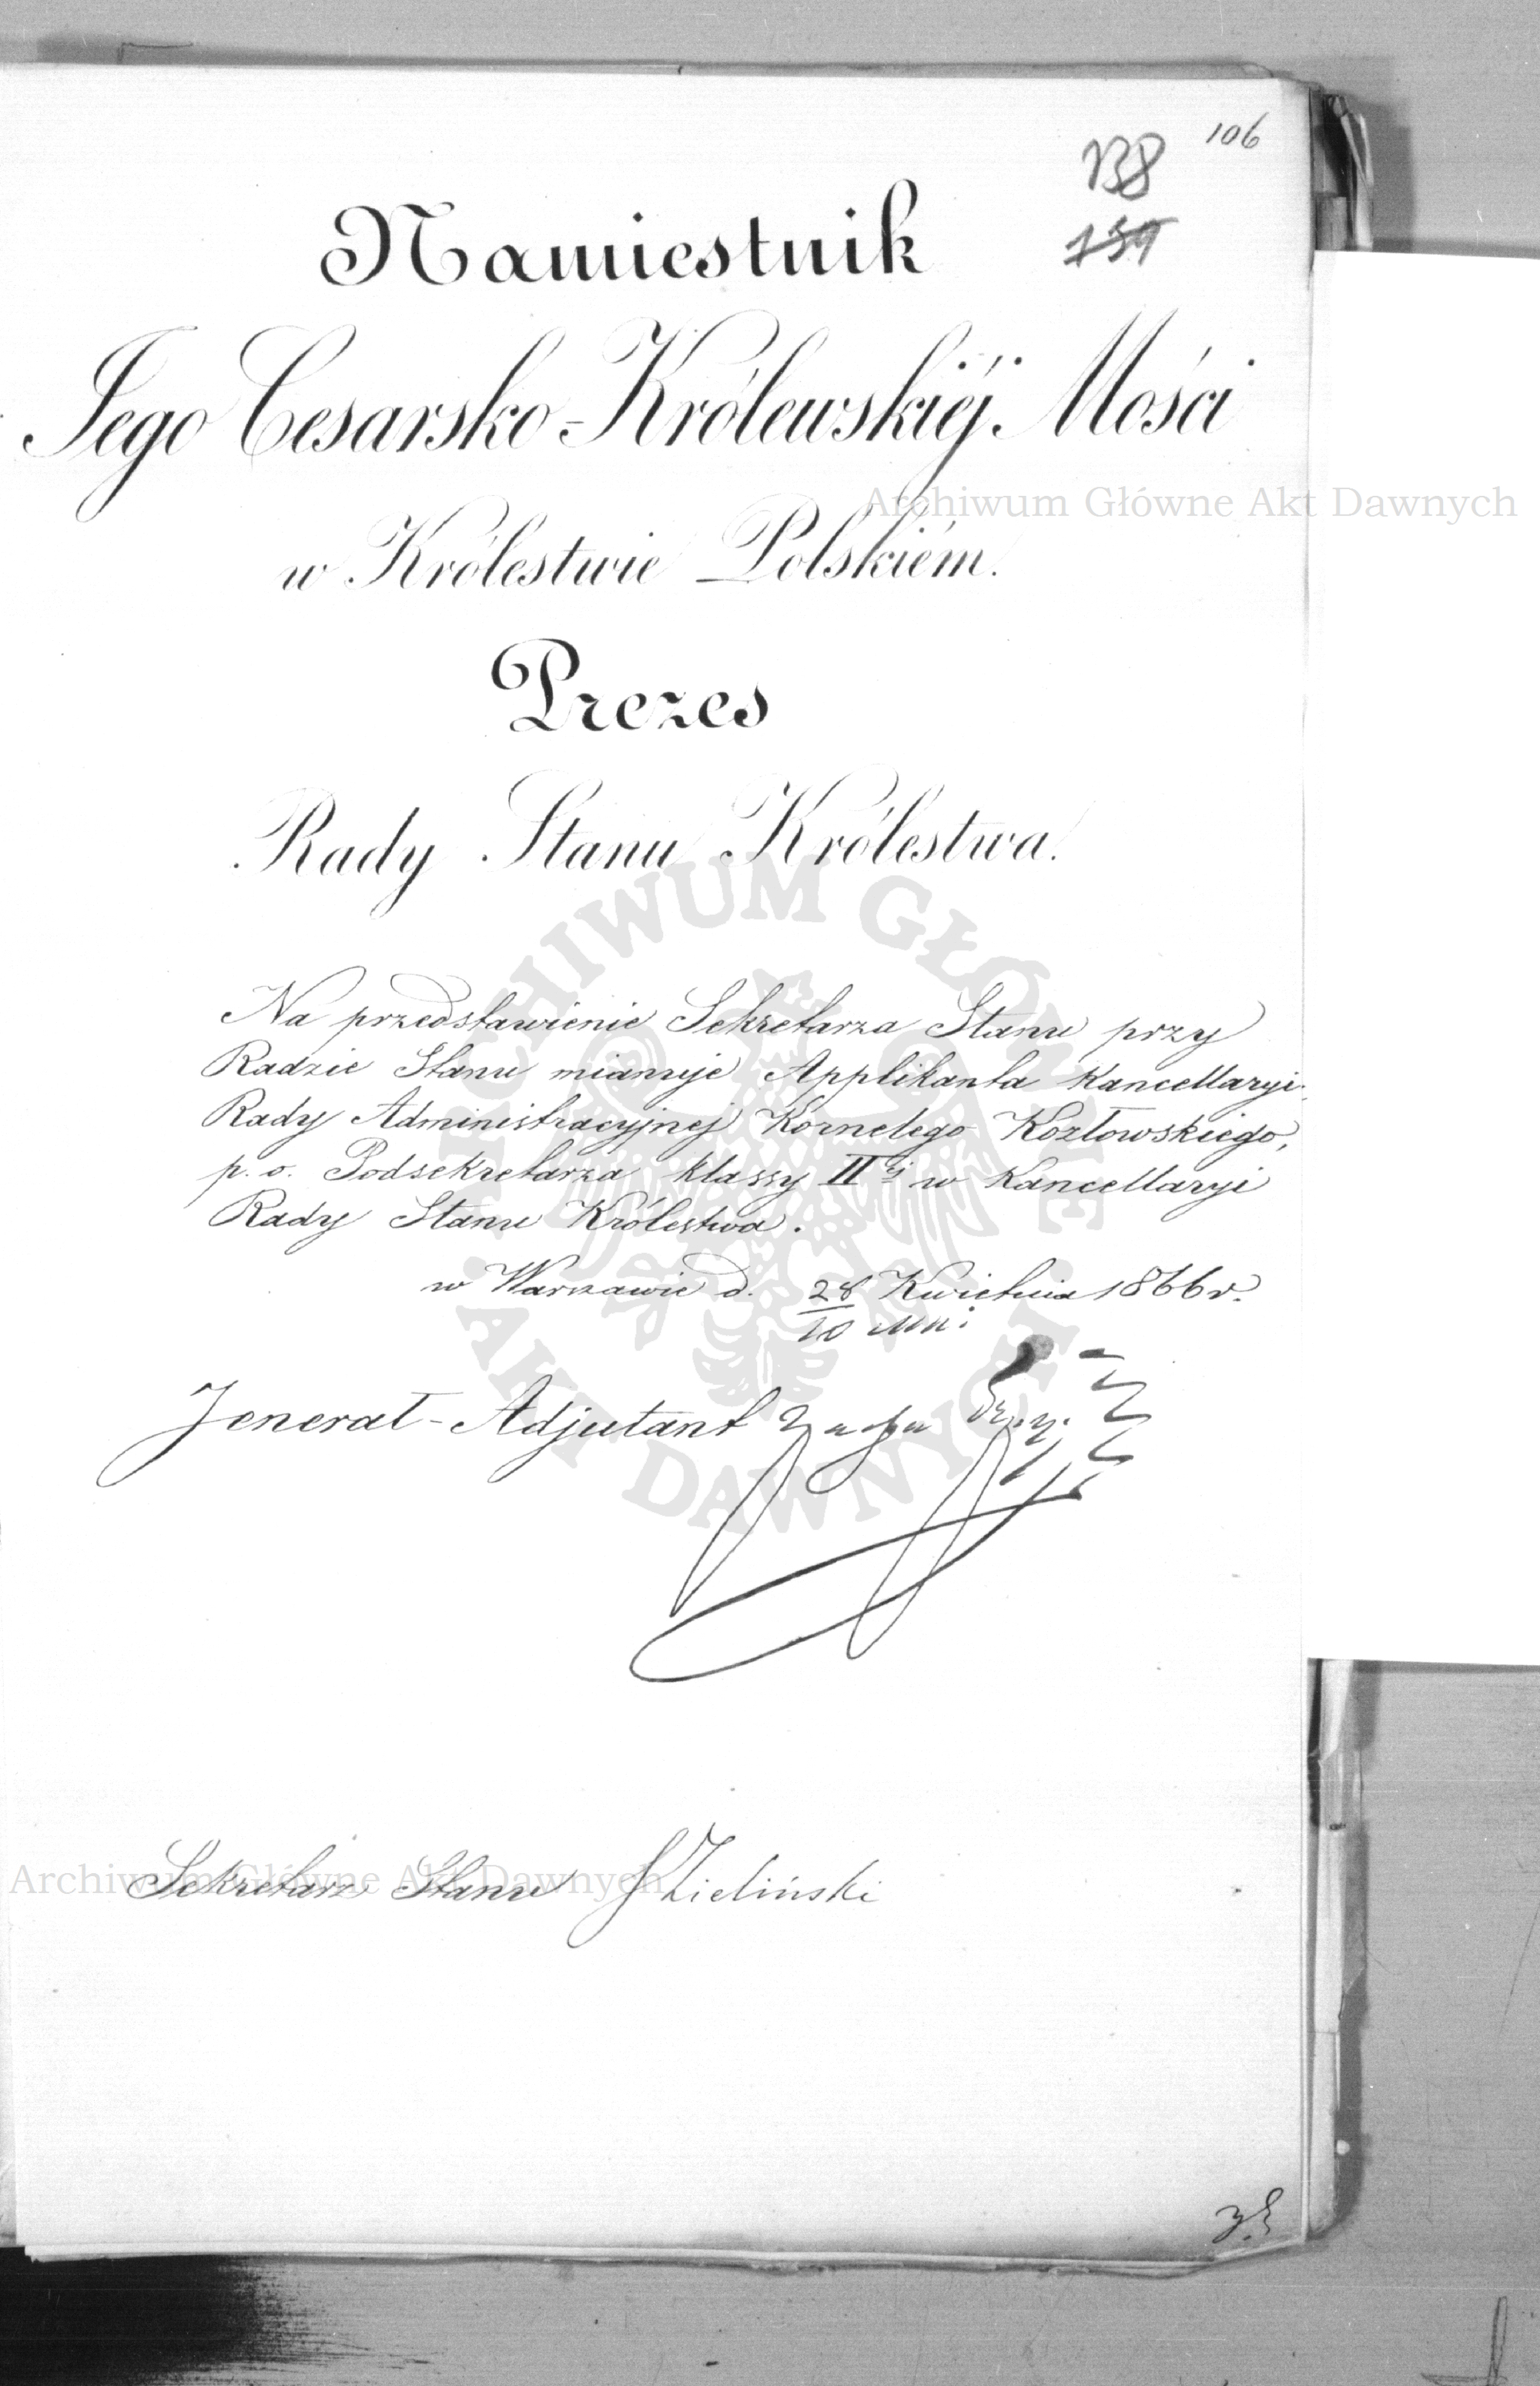 106
138
139
Namiestnik
Jego Cesarsko-Królewskiéj Mości
Archiwum Główne Akt Dawnych
w Królestwie Polskiém.
Prezes
Rady Stanu Królestwa.
Na przedstawienie Sekretarza Stanu przy
Radzie Stanu mianuje Applikanta Kancellaryi
Rady Administracyjnej Kornelego Kozłowskiego,
p. o. Podsekretarza klassy IIéj w Kancellaryi
Rady Stanu Królestwa.
w Warszawie d. 28 Kwietnia 1866 r.
10 Mai
Jenerał-Adjutant
Sekretarz Stanu JZieliński
Archiwum Główne Akt Dawnych
ARCHIWUM GŁÓWNE
AKT DAWNYCH